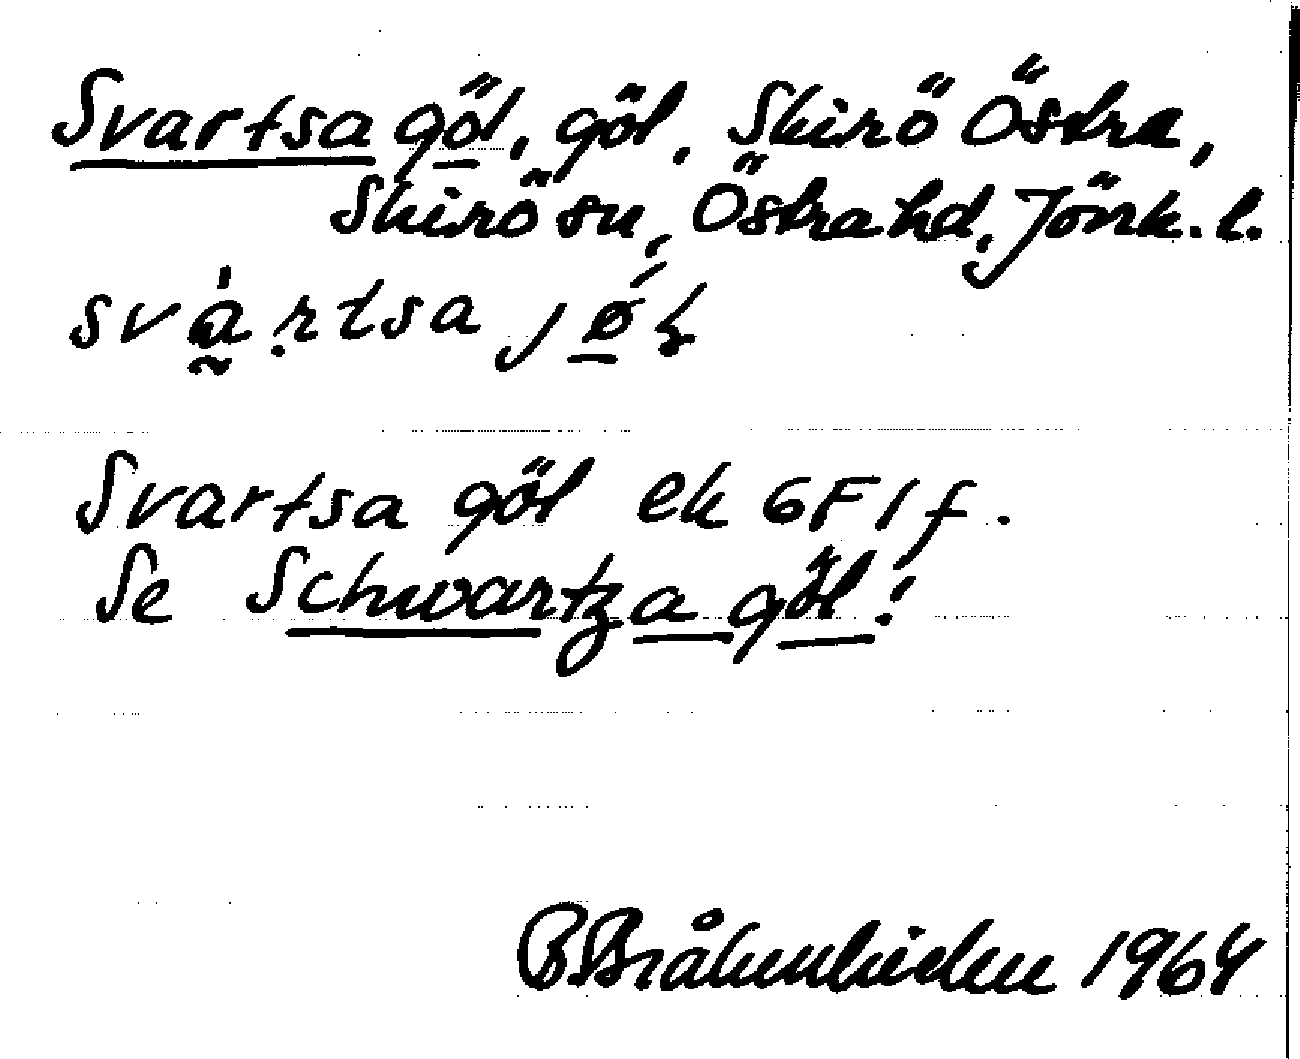 Svartsa göl, göl, Skirö Östra,
Skirö sn, Östra hd, Jönk. l.
sva̰̍ṛtsa jǿɫ
Svartsa göl ek 6F1f.
Se Schwartza göl!
1964